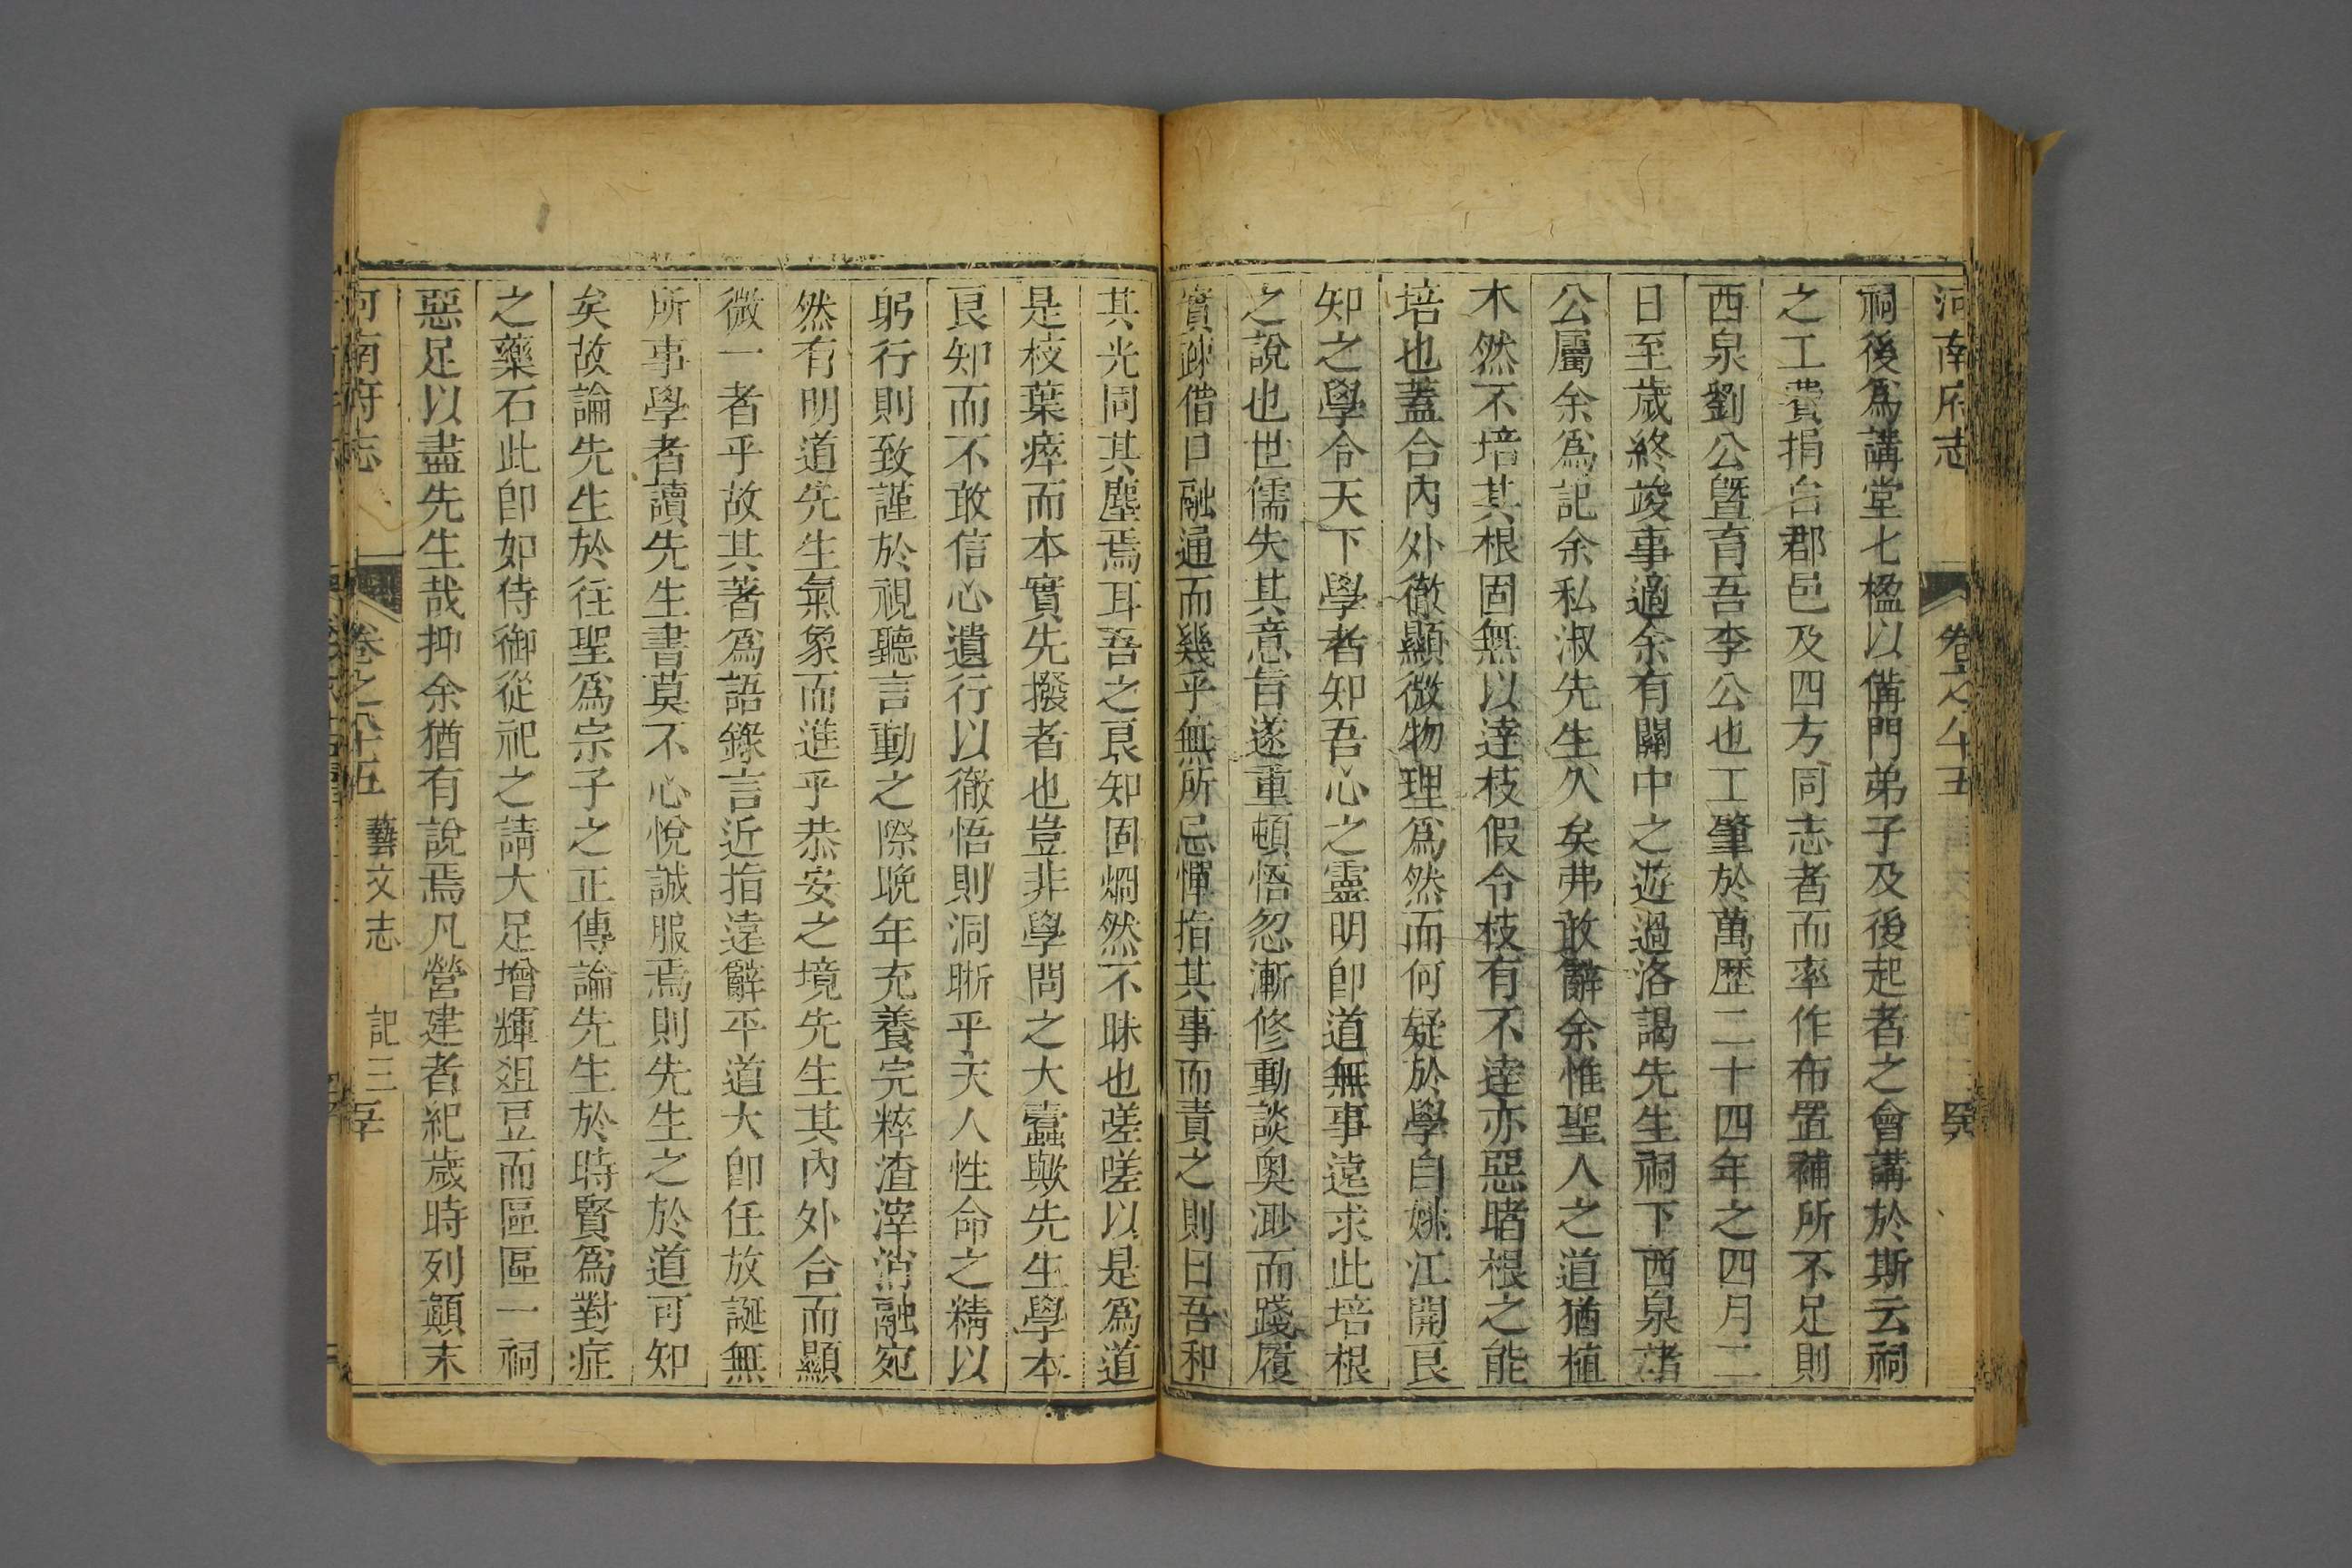 河南府志 卷之八十五
祠後爲講堂七楹以備門弟子及後起者之會講於斯云祠
之工費捐台郡邑及四方同志者而率作布置補所不足則
西泉劉公曁育吾李公也工肇於萬歷二十四年之四月二
日至歲終竣事適余有關中之遊過洛謁先生祠下西泉諸
公屬余爲記余私淑先生久矣弗敢辭余惟聖人之道猶植
木然不培其根固無以達枝假令枝有不達亦惡睹根之能
培也蓋合內外徹顯微物理爲然而何疑於學自姚江開良
知之學令天下學者知吾心之靈明卽道無事遠求此培根
之說也世儒失其意旨遂重頓悟忽漸修動談奥渺而踐履
實踈借曰融通而幾乎無所忌憚指其事而責之則曰吾和
其光同其塵焉耳吾之良知固烱然不昧也嗟嗟以是爲道
是枝葉瘁而本實先撥者也豈非學問之大蠧歟先生學本
良知而不敢信心遺行以徹悟則洞晰乎天人性命之精以
躬行則致謹於視聽言動之際晩年充養完粹渣滓消融宛
然有明道先生氣象而進乎恭安之境先生其內外合而顯
微一者乎故其著爲語錄言近指遠辭平道大卽任放誕無
所事學者讀先生書莫不心悅誠服焉則先生之於道可知
矣故論先生於往聖爲宗子之正傳論先生於時賢爲對症
之藥石此卽如侍御從祀之請大足增輝俎豆而區區一祠
惡足以盡先生哉抑余猶有說焉凡營建者紀歲時列顚末
河南府志 卷之八十五 藝文志 記三